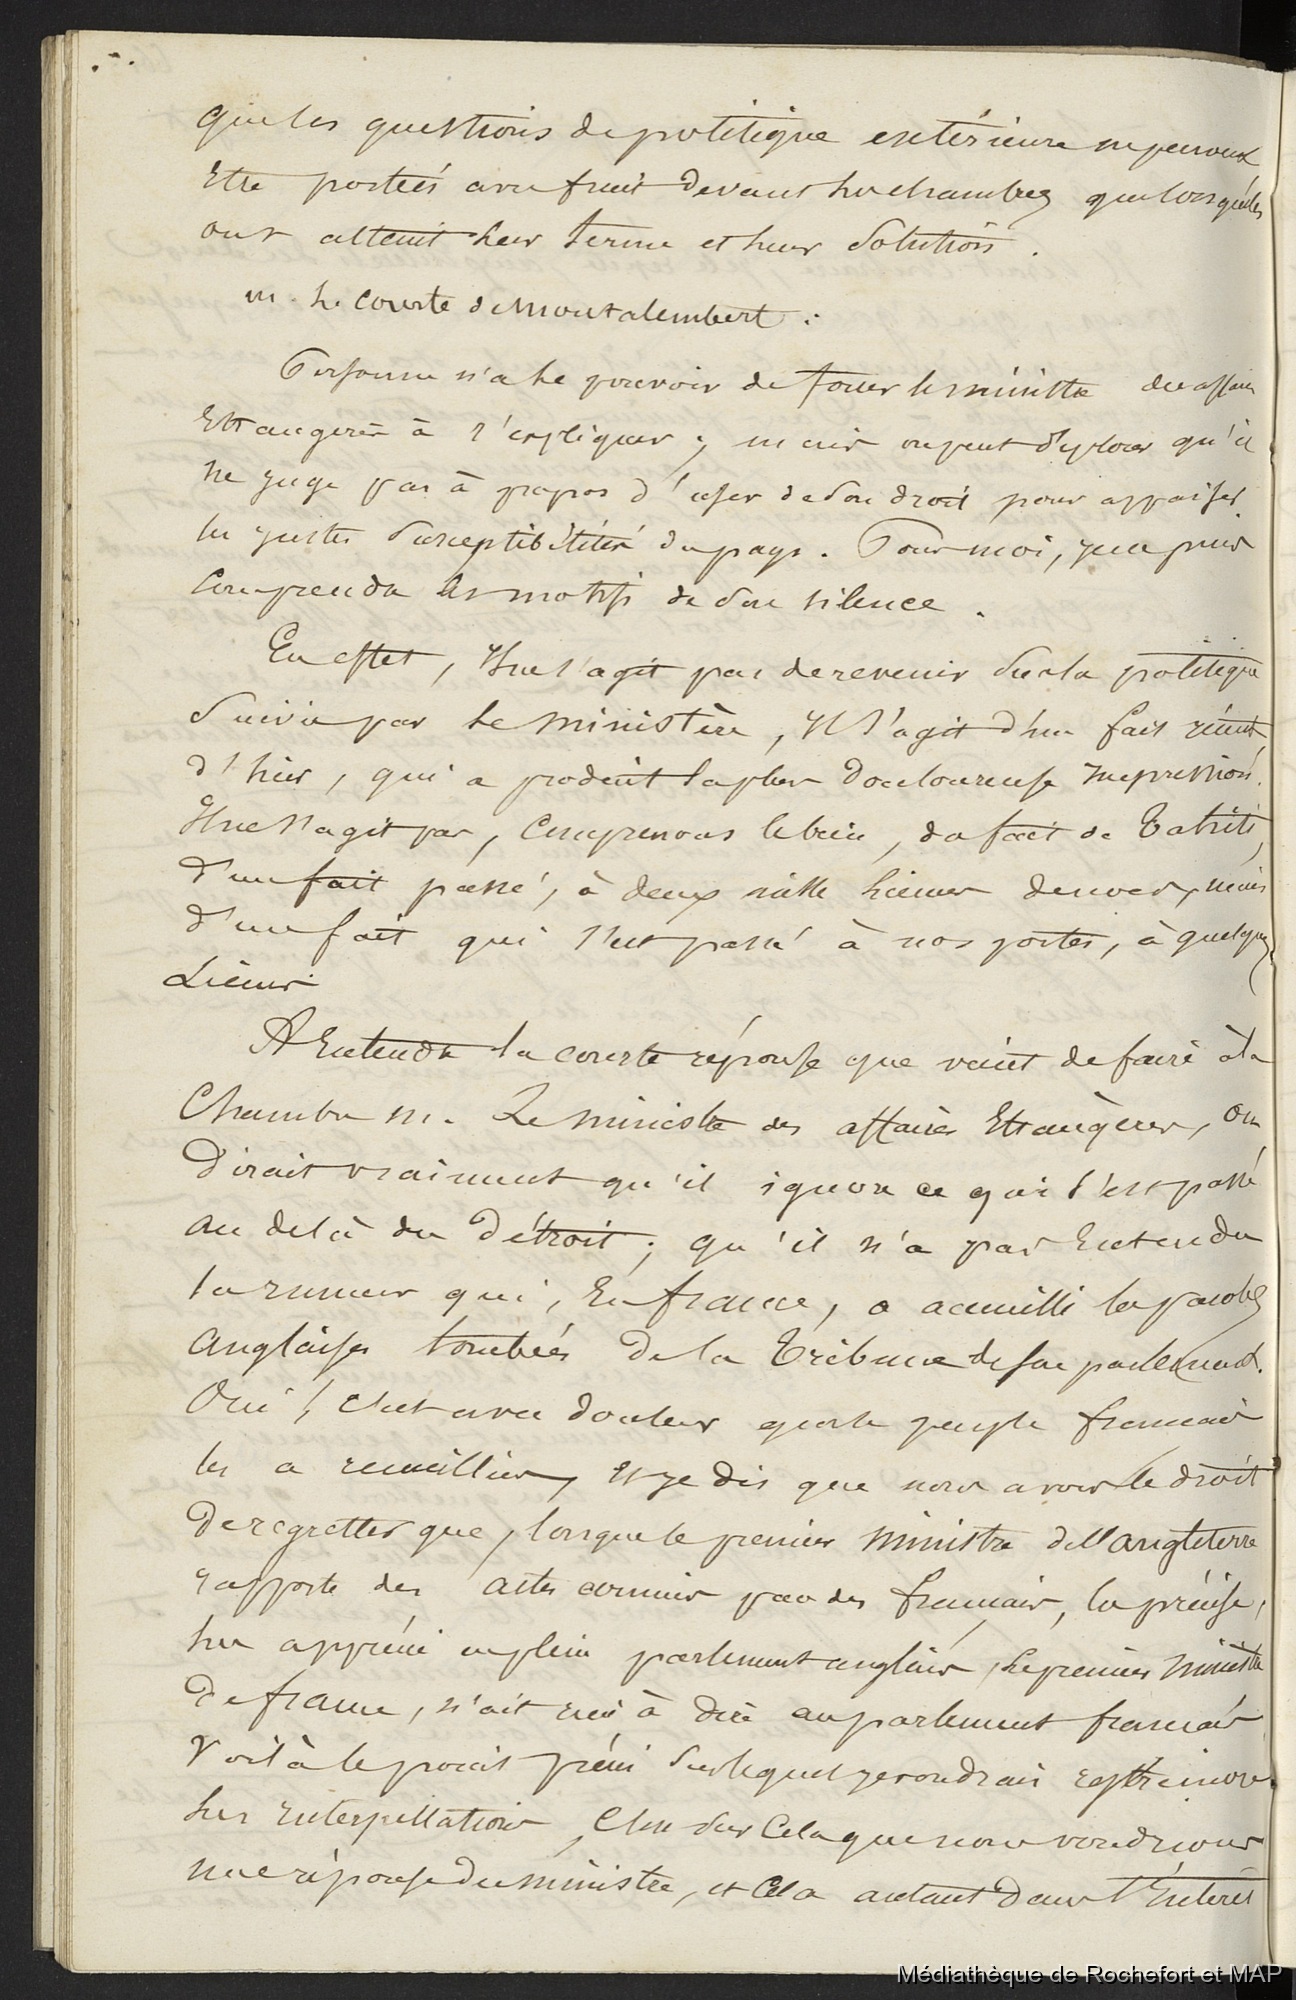 que les questions de politique extérieure ne peuvent
être portées avec fruit devant les chambres que lorsqu'elles
ont atteint leur terme et leur solution.
M. le comte de Montalembert :
Personne n'a le pouvoir de forcer le ministre des affaires
Etrangères à s'expliquer ; mais on peut déplorer qu'il
ne juge pas à propos d'user de son droit pour appaiser
les justes susceptibilités du pays. Pour moi, je ne puis
comprendre les motifs de son silence.
En effet, il ne s'agit pas de revenir sur la politique
suivie par le ministère, il s'agit d'un fait récent,
d'hier, qui a produit la plus douloureuse impression.
Il ne s'agit pas, comprenons le bien, du fait de Tahiti,
d'un fait passé, à deux mille lieues de nous, mais
d'un fait qui s'est passé à nos portes, à quelques
lieues.
A Entendre la courte réponse que vient de faire à la
Chambre M. Le ministre des affaires Etrangères, on
dirait vraiment qu'il ignore ce qui s'est passé
au delà du Détroit ; qu'il n'a pas Entendu
la rumeur qui, En france, a accueilli les paroles
anglaises tombées de la Tribune de son parlement.
Oui ! C'est avec douleur que le peuple français
les a recueillies, et je dis que nous avons le droit
de regretter que, lorsque le premier ministre de l'angleterre
rapporte des actes commis par des français, les précise,
les apprécie en plein parlement anglais, le premier ministre
de france, n'ait rien à dire au parlement français.
Voilà le point précis sur lequel je voudrais restreindre
les interpellations, C'est sur Cela que nous voudrions
une réponse du ministre, et Cela autant dans l'intérêt
Médiathèque de Rochefort et MAP